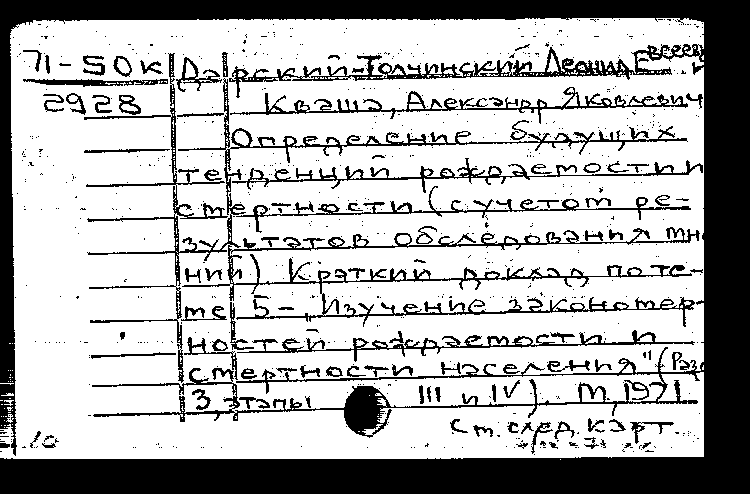 71-50к Дарский-Толчинский Леонид Евсеевич
2928 Кваша, Александр Яковлевич
Определение будущих
тенденций рождаемости и
смертности (с учетом ре-
зультатов обследования мне
ний) Краткий доклад по те-
ме 5-„Изучение закономер-
ностей рождаемости и
смертности населения" (Разд
3, этапы III и IV). М, 1971.
См. след. карт.
10